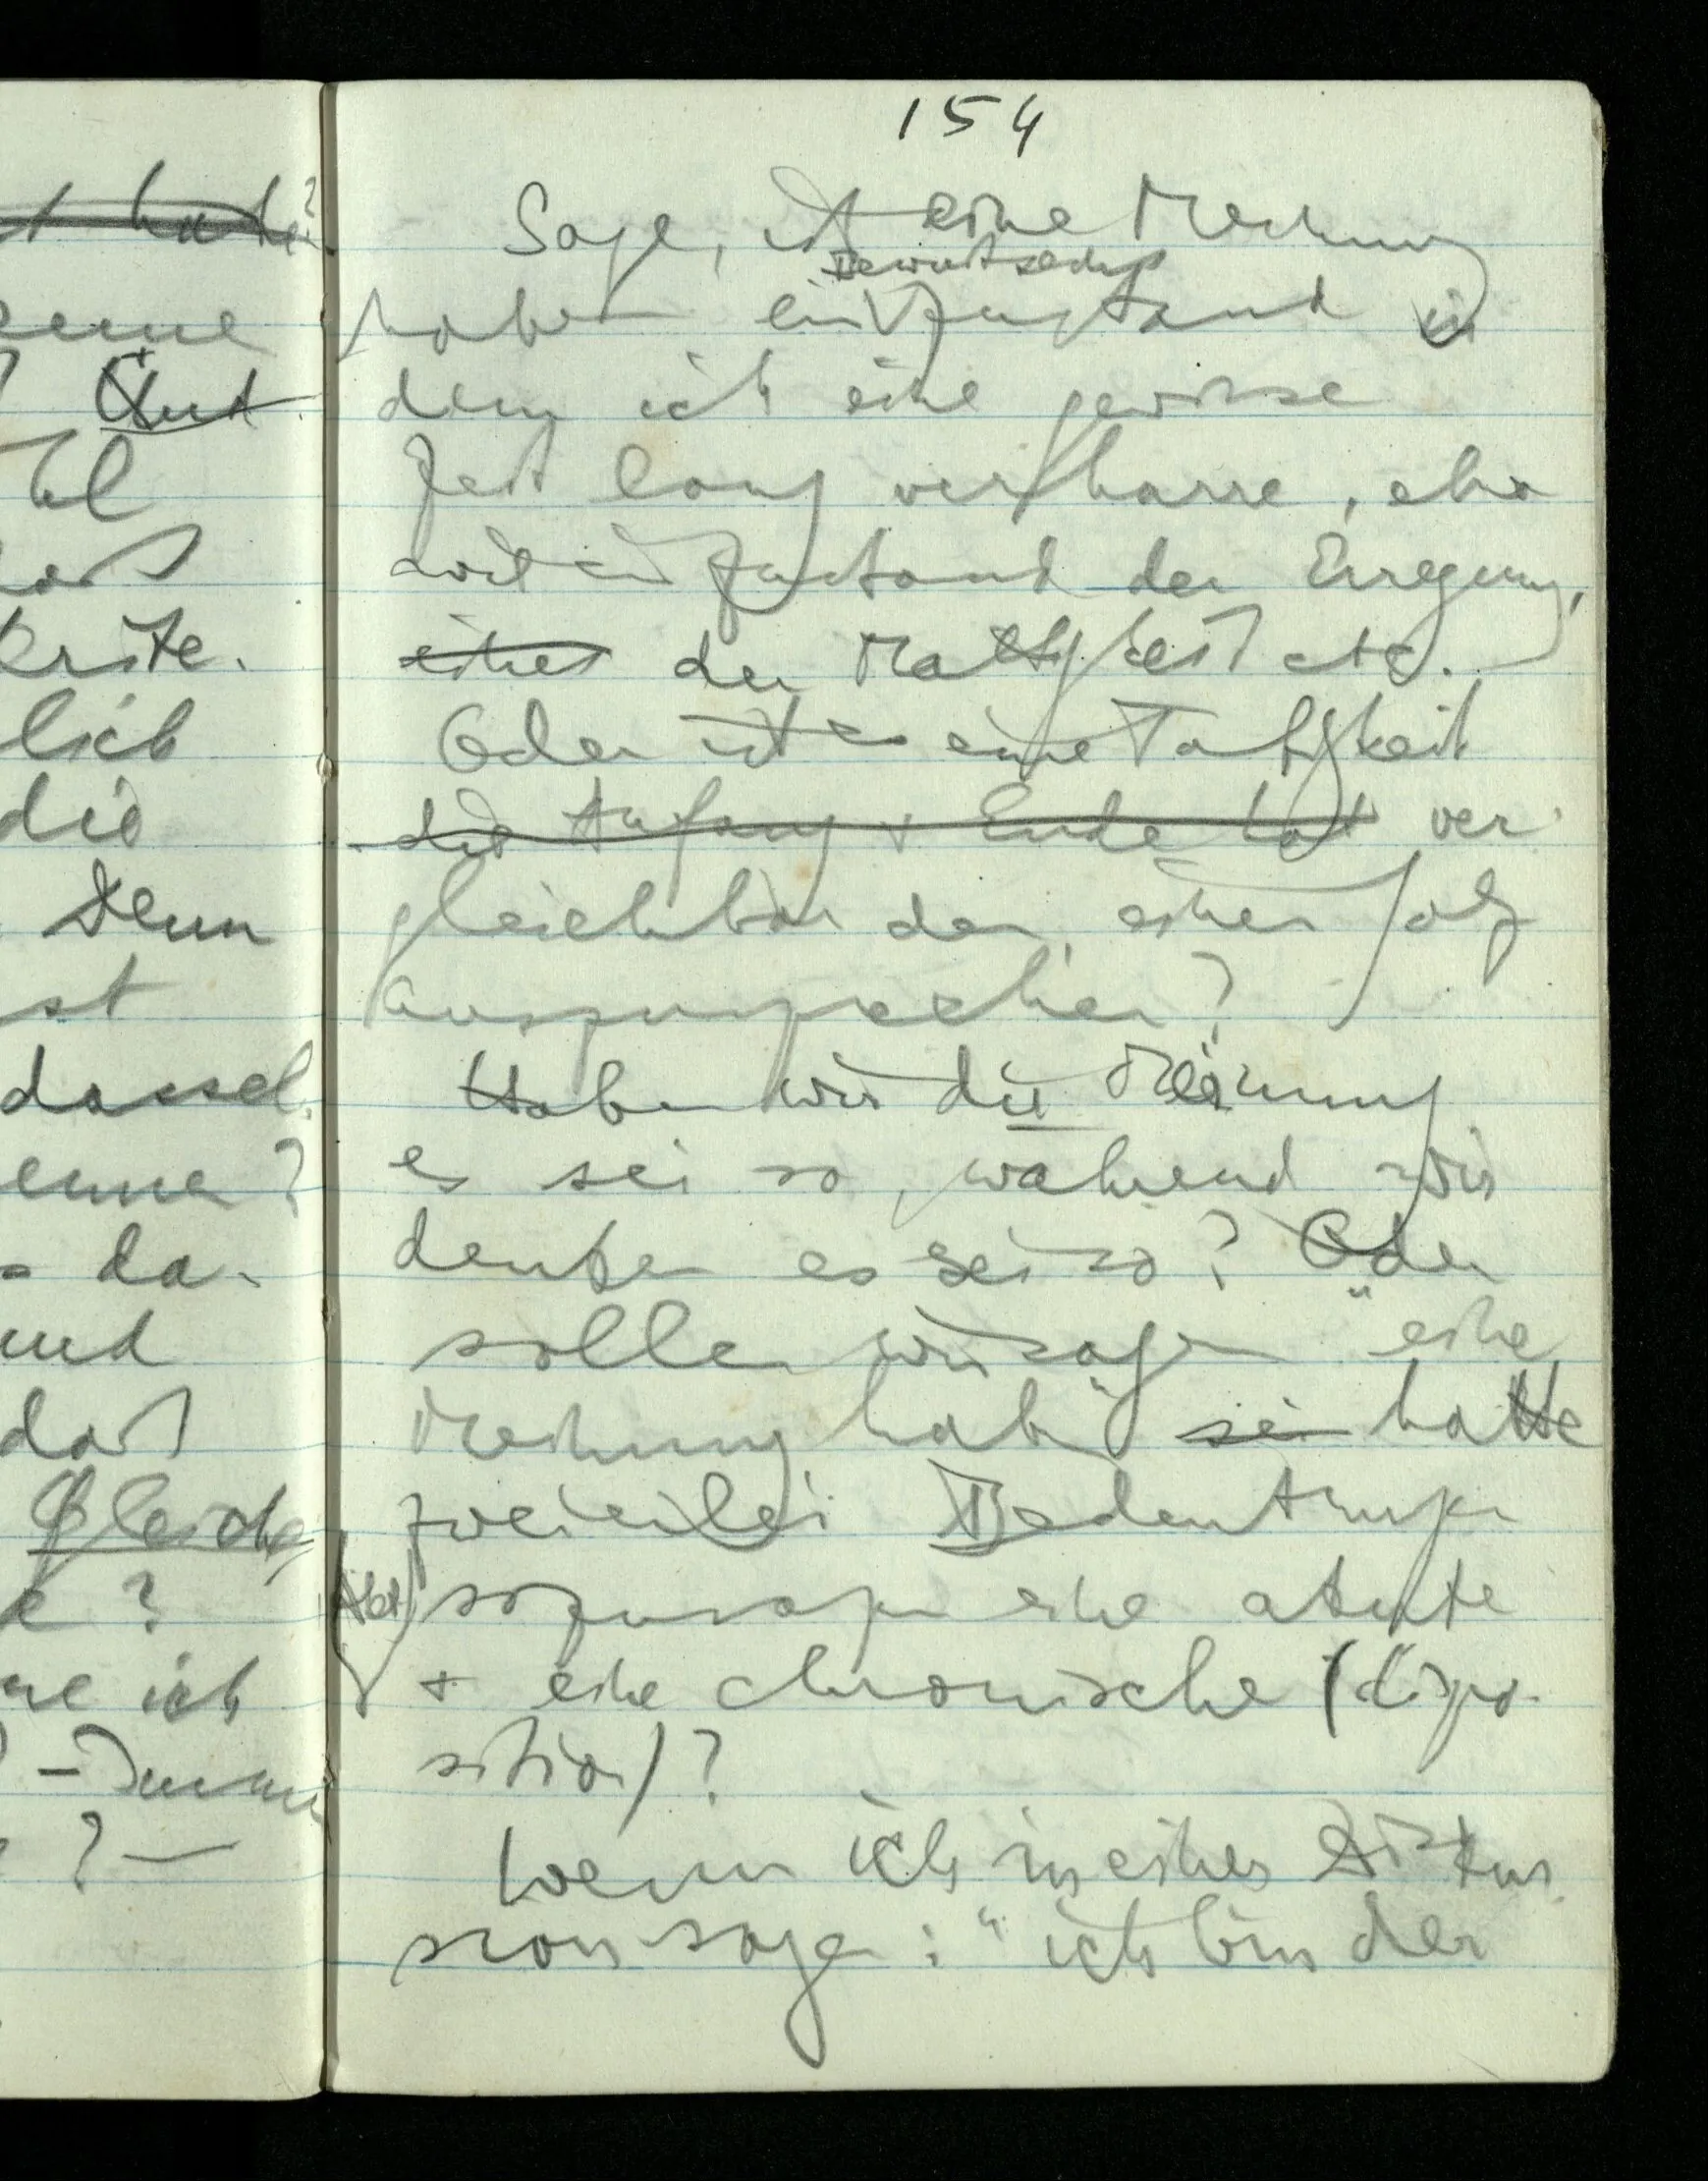 t hatte?
erne
Und
hl
hast
kriste.
lich
die
Denn
st
dassel
enne?
da-
und
dast
Gleiche
e?
ne ich
– Immer
? —
154
Sage, ist eine Meinung
Bewusstseins
haben ein Zustand in
dem ich eine gewisse
Zeit lang verharre, etwa
wie ein Zustand der Erregung,
einer der Mattigkeit etc.
Oder ist es eine Tätigkeit
die Anfang + Ende hat ver-
gleichbar der, einen Satz
auszusprechen?
Haben wir die Meinung
es sei so, während wir
denken es sei so? Oder
sollen wir sagen "eine
Meinung haben" sei hatte
zweierlei Bedeutungen
sozusagen eine akute
+ eine chronische (dispo-
sition)?
Wenn ich in einer Diskus-
sion sage: "ich bin der